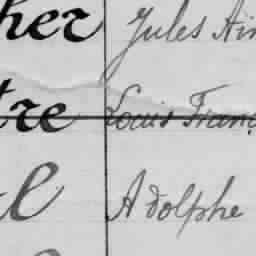 her Jules Ai
tre Louis Franç
el Adolphe